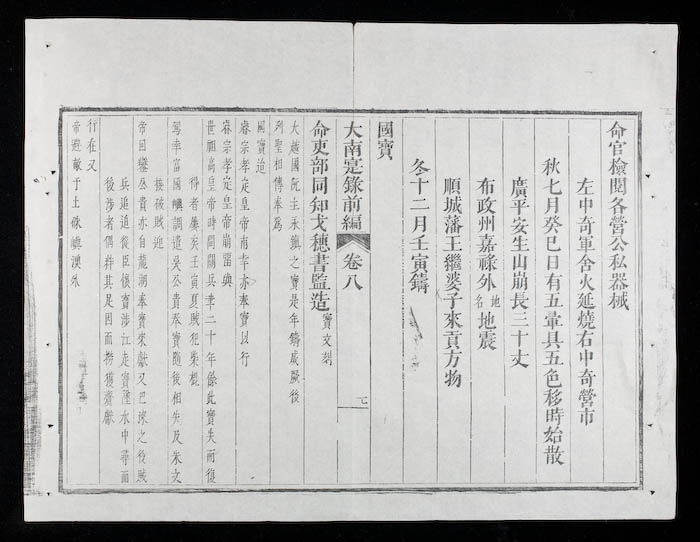 命官檢閱各營公私器械
左中奇軍舍火延燒右中奇營市
秋七月癸巳日有五暈具五色移時始散
廣平安生山崩長三十丈
布政州嘉祿外地名地震
順城藩王繼婆子來貢方物
冬十二月壬寅鑄
國寶
大南寔錄前編 卷八 七
命吏部同知戈穗書監造寶文刻
大越國阮主永鎮之寶是年鑄成厥後
列聖相傳奉爲
國寶迨
睿宗孝定皇帝南幸亦奉寶以行
睿宗孝定皇帝崩留與
世祖高皇帝時間關兵革二十年餘此寶失而復
得者屢矣壬寅夏賊犯柴棍
駕幸富國嶼調遣吳公貴奉寶隨後相失及朱文
接破賊迎
帝回鑾公貴亦自龍湖奉寶來獻又巴求之後賊
兵追迫從臣懷寶涉江走寶墮水中尋而
後涉者偶絆其足因而撈獲賫獻
行在又
帝避敵于土硃嶼澳外